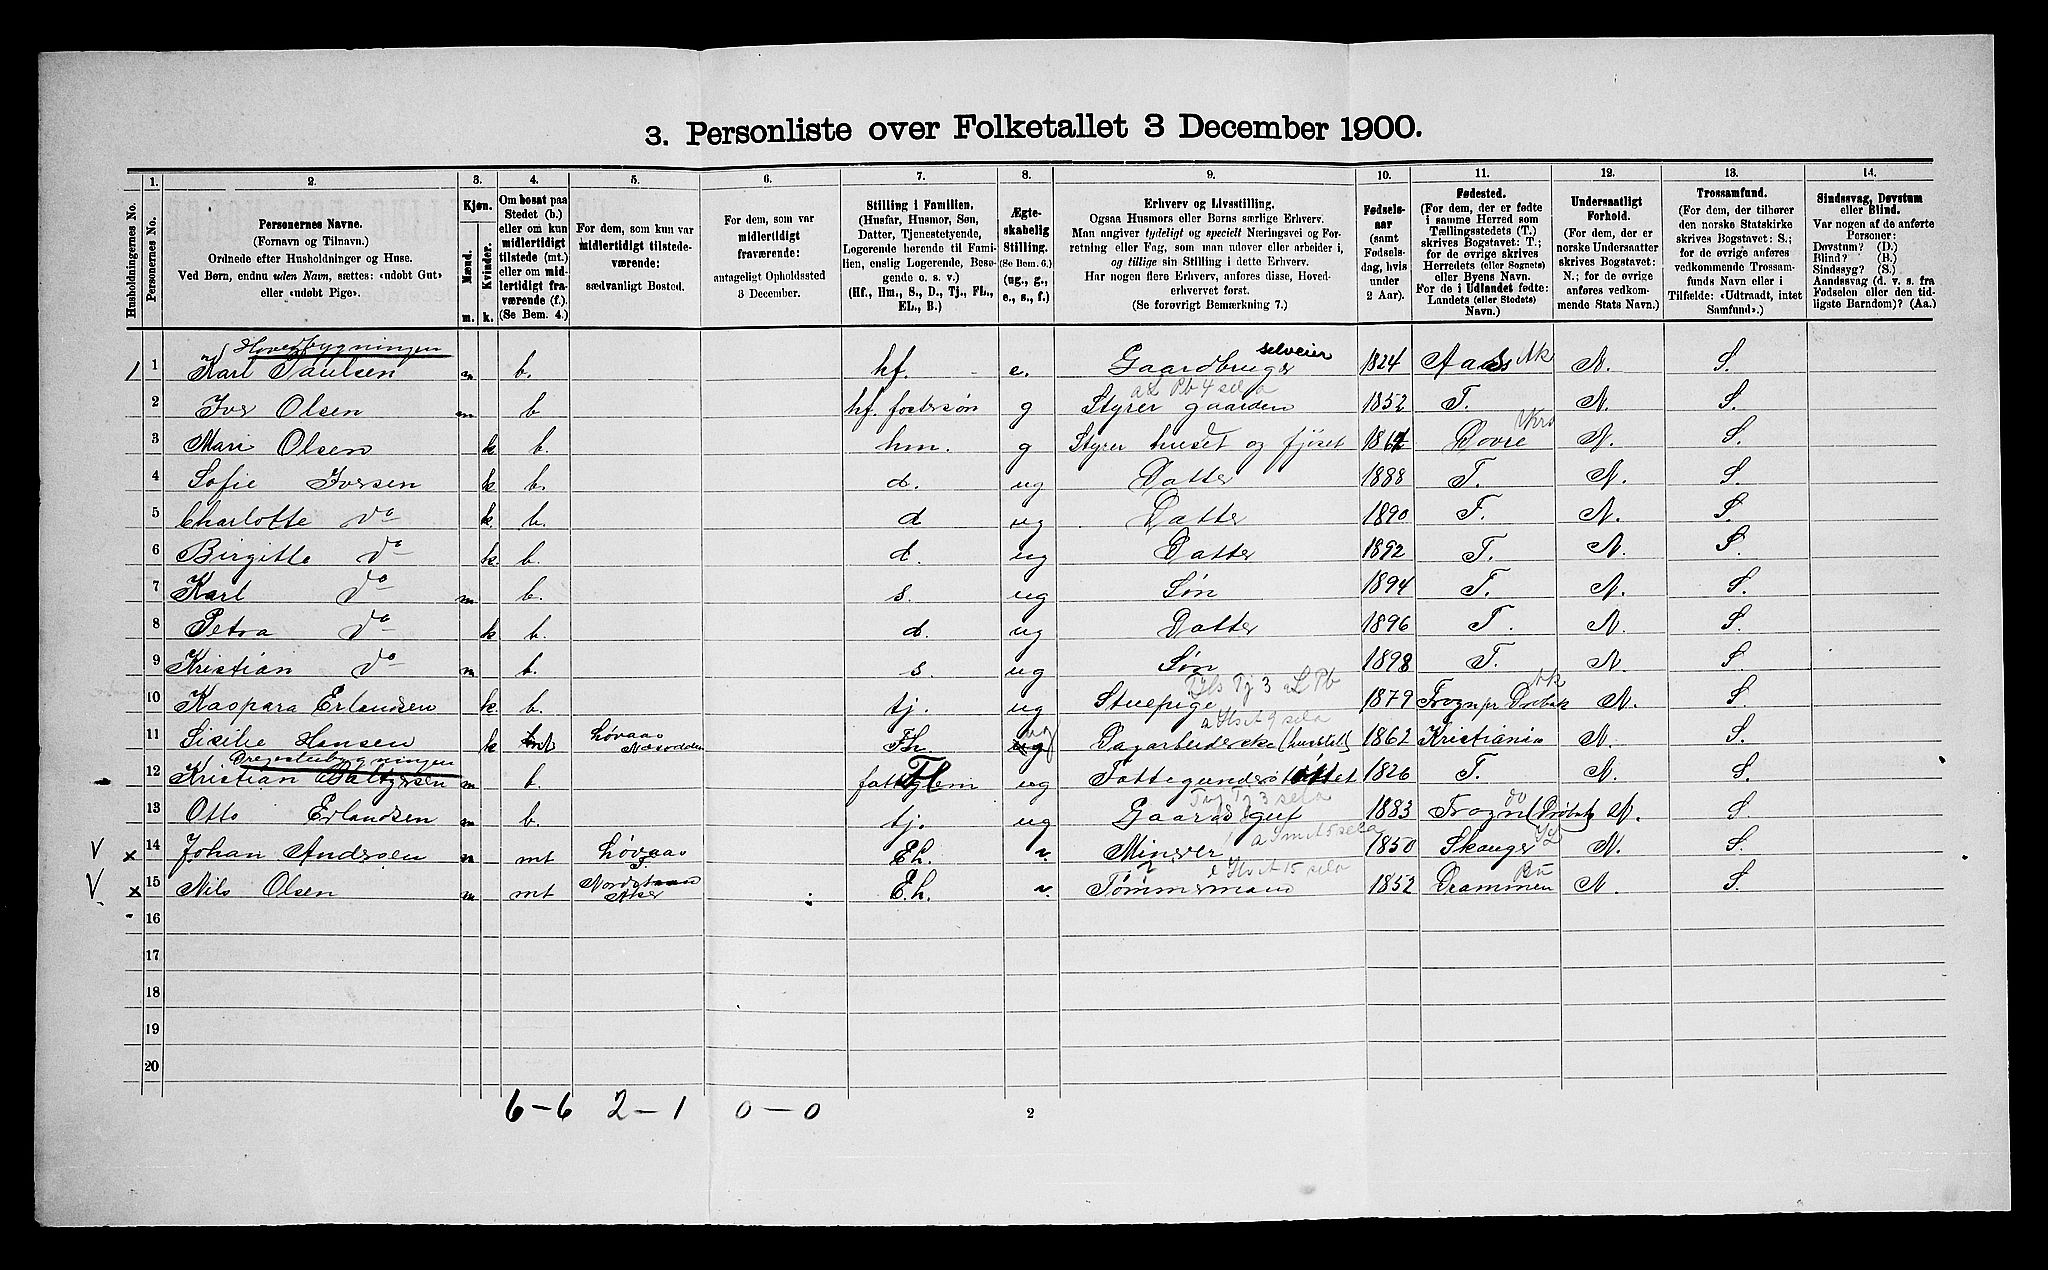 3. Personliste over Folketallet 3 December 1900.
Husholdningernes No.
1. Personernes No.
2. Personernes Navne. (Fornavn og Tilnavn.) Ordnede efter Husholdninger og Huse. Ved Børn, endnu uden Navn, sættes: «udøbt Gut» eller «udøbt Pige».
3. Kjøn. Mænd. m. Kvinder. k.
4. Om bosat paa Stedet (b.) eller om kun midlertidigt tilstede (mt.) eller om midlertidigt fraværende (f.). (Se Bem. 4.)
5. For dem, som kun var midlertidigt tilstedeværende: sædvanligt Bosted.
6. For dem, som var midlertidigt fraværende: antageligt Opholdssted 3 December.
7. Stilling i Familien. (Husfar, Husmor, Søn, Datter, Tjenestetyende, Logerende hørende til Familien, enslig Logerende, Besøgende o. s. v.) (Hf., Hm., S., D., Tj., FL., EL., B.)
8. Ægteskabelig Stilling. (Se Bem. 6.) (ug., g., e., s., f.)
9. Erhverv og Livsstilling. Ogsaa Husmors eller Børns særlige Erhverv. Man angiver tydeligt og specielt Næringsvei og Forretning eller Fag, som man udøver eller arbeider i, og tillige sin Stilling i dette Erhverv. Har nogen flere Erhverv, anføres disse, Hovederhvervet først. (Se forøvrigt Bemærkning 7.)
10. Fødselsaar (samt Fødselsdag, hvis under 2 Aar).
11. Fødested. (For dem, der er fødte i samme Herred som Tællingsstedets (T.) skrives Bogstavet: T.; for de øvrige skrives Herredets (eller Sognets) eller Byens Navn. For de i Udlandet fødte: Landets (eller Stedets) Navn.)
12. Undersaatligt Forhold. (For dem, der er norske Undersaatter skrives Bogstavet: N.; for de øvrige anføres vedkommende Stats Navn.)
13. Trossamfund. (For dem, der tilhører den norske Statskirke skrives Bogstavet: S.; for de øvrige anføres vedkommende Trossamfunds Navn eller i Tilfælde: «Udtraadt, intet Samfund».)
14. Sindssvag, Døvstum eller Blind. Var nogen af de anførte Personer: Døvstum? (D.) Blind? (B.) Sindssyg? (S.) Aandssvag (d. v. s. fra Fødselen eller den tidligste Barndom)? (Aa.)
Hovedbygningen
1 1 Karl Paulsen m b. hf. e. Gaardbruger selveier 1824 Aas Ak N. S.
2 Iver Olsen m b hf. fostersøn g Styrer gaarden 1852 T. N. S.
3 Mari Olsen k b. hm. g Styrer huset og fjöset Dovre N. S.
4 Sofie Iversen k b. d. ug Datter 1888 T. N. S.
5 Charlotte do k. b. d ug Datter 1890 T. N. S.
6 Birgitte do k. b. d. ug Datter 1892 T. N. S.
7 Karl do m b. s. ug Søn 1894 T. N. S.
8 Petra do k b. d. ug Datter 1896 T. N. S.
9 Kristian do m b. s. ug Søn 1898 T. N. S.
10 Kaspara Erlandsen k. b. tj. ug Stuepige 1879 Frogn pr Drøbak Ak N. S.
11 Sisilie Hansen k mt Løvaas Næsodden Fl. ug 1862 Kristiania N. S.
Drengestubygningen
12 Kristian m b. ug Fattigunderstöttet 1826 T. N. S.
13 Otto Erlandsen m b. tj. ug Gaardsgut 1883 Frogn (Drøbak) do N. S.
V x 14 Johan Andersen m mt Løvaas T. E.l. Minerer 1850 N. S.
V x 15 Nils Olsen m mt Aker E.l. Tömmermand 1852 Drammen Bu N. S.
16
17
18
19
20
6-6 2-1 0-0
2